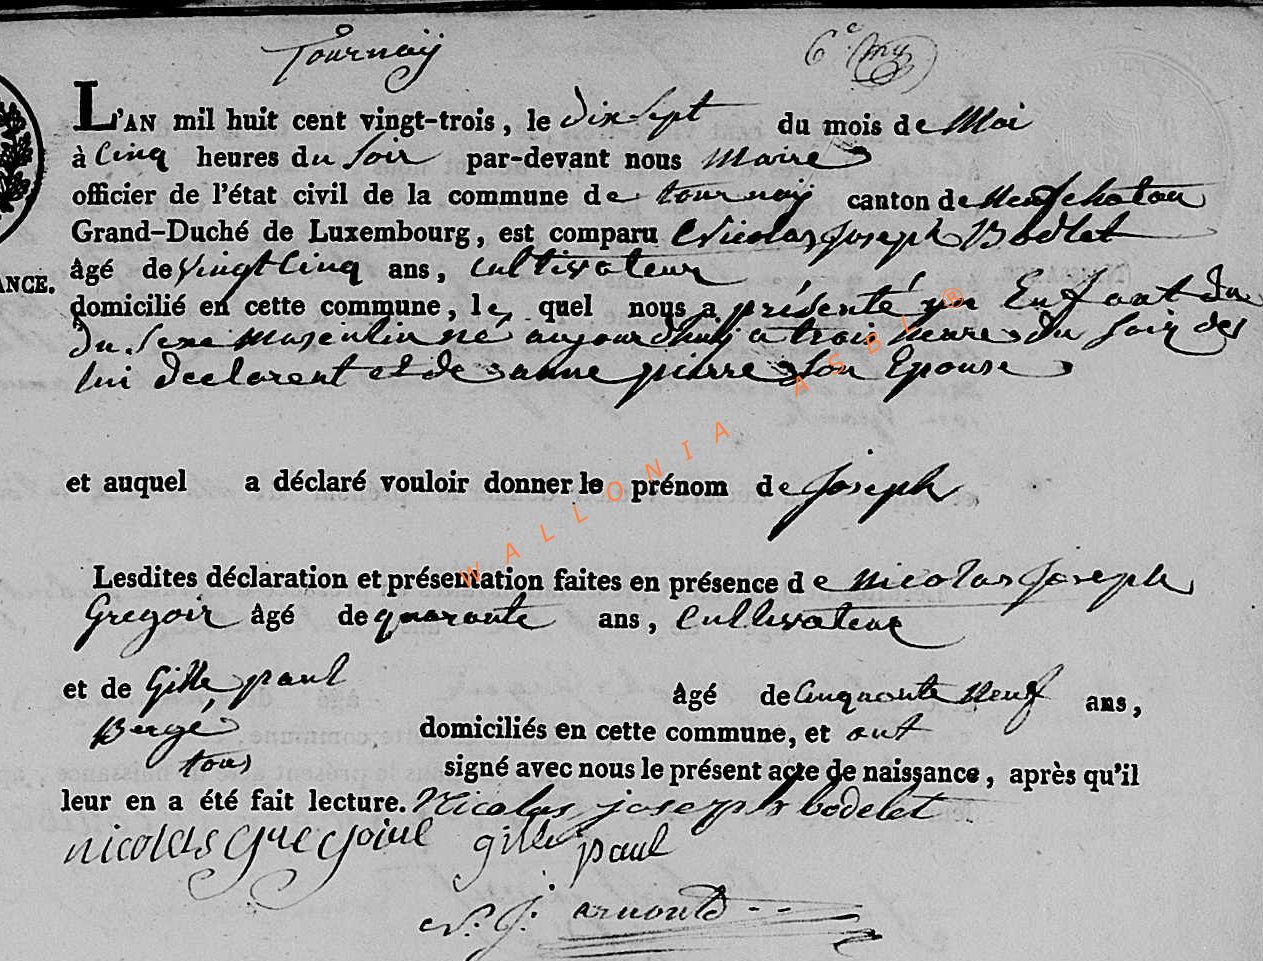 Tournay
6e
L'AN mil huit cent vingt-trois, le dix Sept du mois de Mai
à Cinq heures du soir par-devant nous Maire
officier de l'état civil de la commune de tournay canton de Neufchatau
Grand-Duché de Luxembourg, est comparu Nicolas joseph Bodlet
ANCE.
âgé de Vingt Cinq ans, Cultivateur
domicilié en cette commune, le quel nous a présenté un Enfant du
du Sexe Masculin né aujourdhuij a trois heures du soir des
lui declarent et de anne pierre son Epouse
et auquel a déclaré vouloir donner le prénom de joseph
Lesdites déclaration et présentation faites en présence de Nicolas joseph
Gregoir âgé de quarante ans, Cultivateur
et de Gille paul âgé de Cinquante Neuf ans,
Bergé domiciliés en cette commune, et ont
tous signé avec nous le présent acte de naissance, après qu'il
leur en a été fait lecture. Nicolas joseph bodelet
nicolas gregoire gille paul
N. J. arnould
WALLONIA ASBL ®